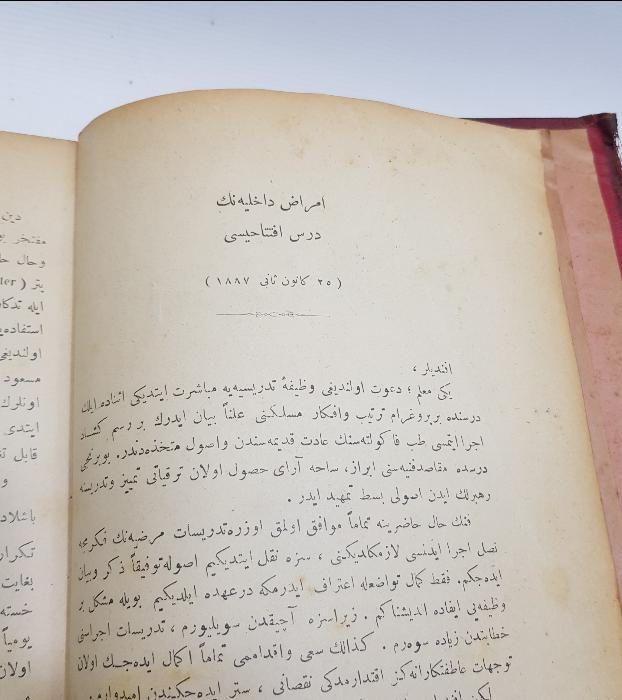 امراض داخلیه‌نك
درس افتتاحیسی
( ۲۵ كانون ثانی ۱۸۸۷ )
افندیلر ،
یكی معلم ؛ دعوت اولندیغی وظیفهٔ تدریسیه‌یه مباشرت ایتدیكی اثناده ایلك
درسنده بر پروغرام ترتیب وافكار مسلكنی علناً بیان ایدرك بر رسم كشاد
اجرا ایتمسی طب فاكولته‌سنك عادت قدیمه‌سندن واصول متخذه‌دندر. بو برنجی
درسده مقاصد فنیه‌سنی ابراز، ساحه آرای حصول اولان ترقیاتی تمییز وتدریسنه
رهبرلك ایدن اصولی بسط تمهید ایدر .
فنك حال حاضرینه تماماً موافق اولمق اوزره تدریسات مرضیه‌نك فكرمجه
نصل اجرا ایدلمسی لازمكلدیكنی ، سزه نقل ایتدیكیم اصوله توفیقاً ذكر وبیان
ایده‌جكم. فقط كمال تواضعله اعتراف ایدرمكه درعهده ایلدیكیم بویله مشكل بر
وظیفه‌یی ایفاده اندیشناكم . زیرا سزه آچیقدن سویلیورم ، تدریسات اجراسنی
خطابتدن زیاده سوه‌رم . كذالك سعی واقداممی تماماً اكمال ایده‌جك اولان
توجهات عاطفتكارانه‌كز اقتدارمدكی نقصانی ، ستر ایده‌جكیندن امیدوارم .
دین
مفتخر
وحال
( ler یتر
ایله
اولندیغی
مسعود
اونلرك
ایتدی
قابل
و
باشلاد
تكرار
بغایت
خسته
یومیاً
اولان